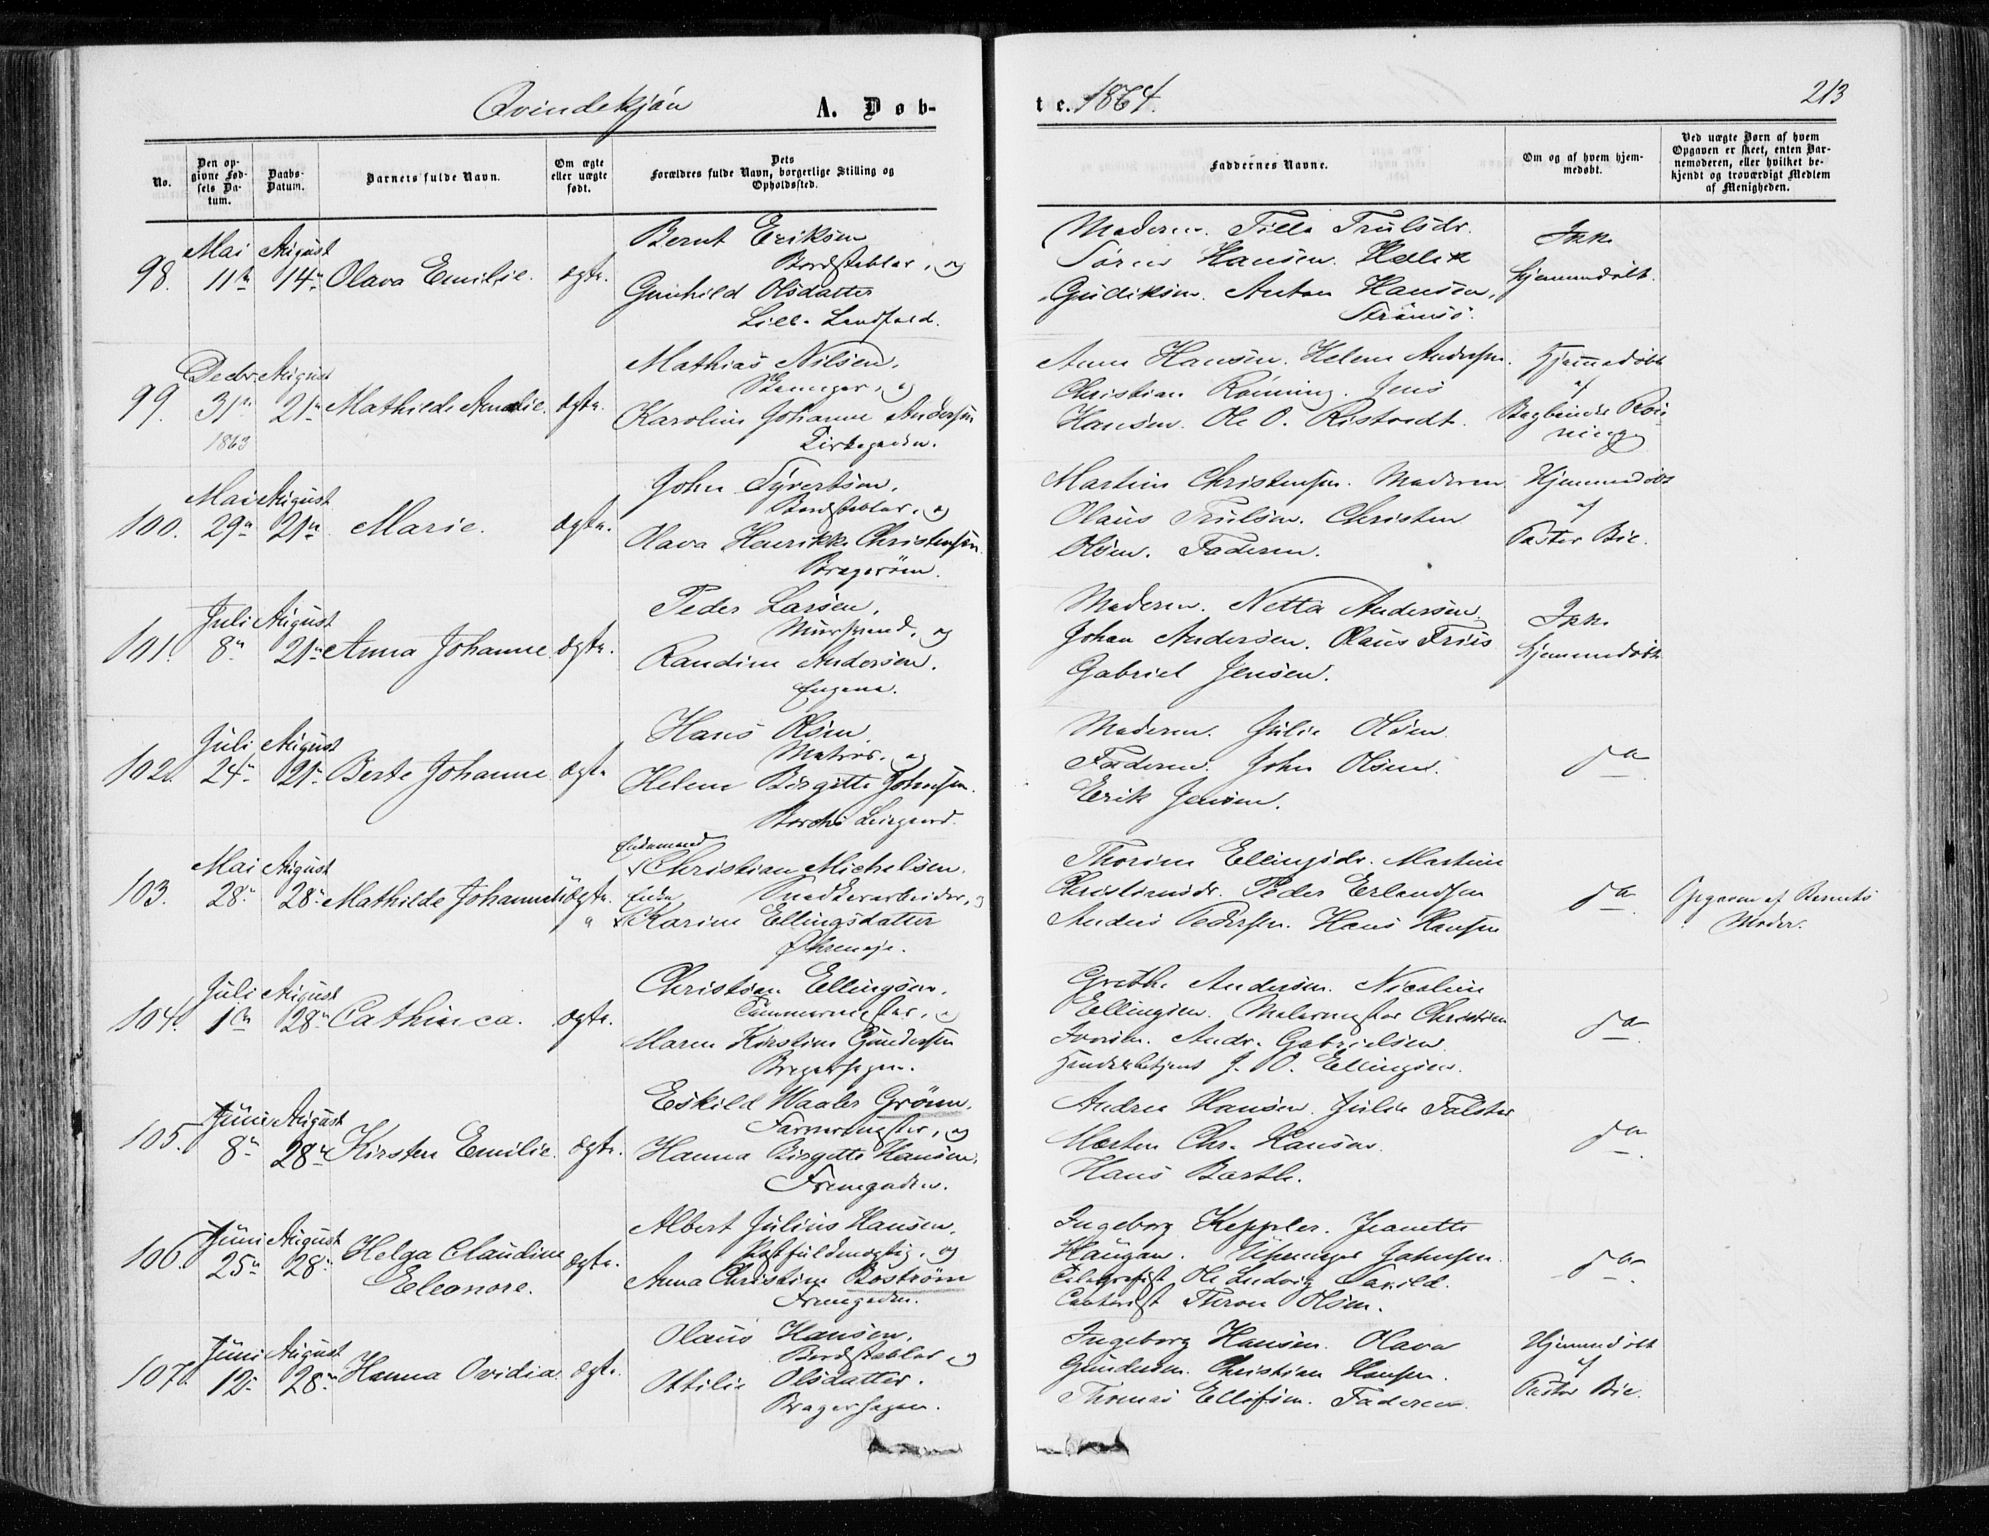 Qvindekjön
A. Døb-
te. 1864.
213
No.
Den opgivne Fødsels Datum.
Daabs-Datum.
Barnets fulde Navn.
Om ægte eller uægte født.
Dets Forældres fulde Navn, borgerlige Stilling og Opholdssted.
Faddernes Navne.
Om og af hvem hjemmedøbt.
Ved uægte Børn af hvem Opgaven er skeet, enten Barnemoderen, eller hvilket bekjendt og troværdigt Medlem af Menigheden.
98. Mai 11te August 14de Olava Emilie. ægte.
Bernt Eriksen
Bordstabler, og
Gunhild Olsdatter
Lille Landfald.
Moderen. Trulsdr.
Hansen.
Anton Hansen,
Strømsö.
Ikke
hjemmedøbt.
99. Decbr. 31te 1863 August 21de Mathilde Amalie. ægte.
Mathias Nilsen,
og
Karoline Johanne Andersen
Anne Hansen. Helene Andersen.
Christian Rönning. Jens
Hansen. Ole O.
Hjemmedøbt
af
Bogbinder Rönning
100. Mai 29de August 21de Marie. ægte.
John Syvertsen,
Bordstabler, og
Olava Henrikke Christensen
Bragerøen.
Martine Christensen. Moderen
Olaus Trulsen. Christen
Olsen. Faderen.
Hjemmedøbt
af
Pastor Bie.
101. Juli 8de August 21de Anna Johanne. ægte.
Peder Larsen,
Murersvend, og
Randine Andersen.
Engene.
Moderen. Netta Andersen
Johan Andersen. Olaus Friis
Gabriel Jensen.
Ikke
hjemmedøbt.
102. Juli 24de August 21de Berte Johanne ægte
Hans Olsen,
Matros, og
Helene Birgitte Johnsen.
Moderen. Julie Olsen.
Faderen. John Olsen.
Erik Jensen.
da
103. Mai 28de August 28de Mathilde Johanne uægte.
Enkemand
Christian Michelsen.
Enke
Karine Ellingsdatter
Thorine Ellingsdr. Martine
Christiansdr. Peder Erlandsen
Anders Pedersen. Hans Hansen
da
Opgaven af Barnets
Moder.
104. Juli 1te August 28de Cathinca. ægte.
Christian Ellingsen,
Tømmermester, og
Maren Kirstine Gundersen
Bragerhagen.
Grethe Andersen. Nicoline
Ellingsen. Malermester Christian
Iversen. Andr. Gabrielsen.
Handelsbetjent J. O. Ellingsen.
da
105. Juni 8de August 28de Kirsten Emilie. ægte.
Eskild Waaler Grönn.
Farvermester, og
Hanna Birgitte Hansen.
Fremgaden.
Andrea Hansen. Julie Falster
Morten Chr. Hansen.
Hans Barth.
da
106. Juni 25de August 28de Helga Claudine Eleonore. ægte.
Albert Julius Hansen,
Postfuldmægtig, og
Anna Christine Boström
Fremgaden.
Ingeborg Keppler. Jeanette
Haugan. Johnsen.
Telegrafist Ole Ludvig
Contorist Theron Olsen.
da
107. Juni 12te August 28de Hanna Ovidia. ægte.
Olaus Hansen,
Bordstabler og
Ottilie Olsdatter.
Bragerhagen.
Ingeborg Hansen. Olava
Gundersen. Christian Hansen.
Thomas Ellefsen. Faderen.
Hjemmedøbt
af
Pastor Bie.